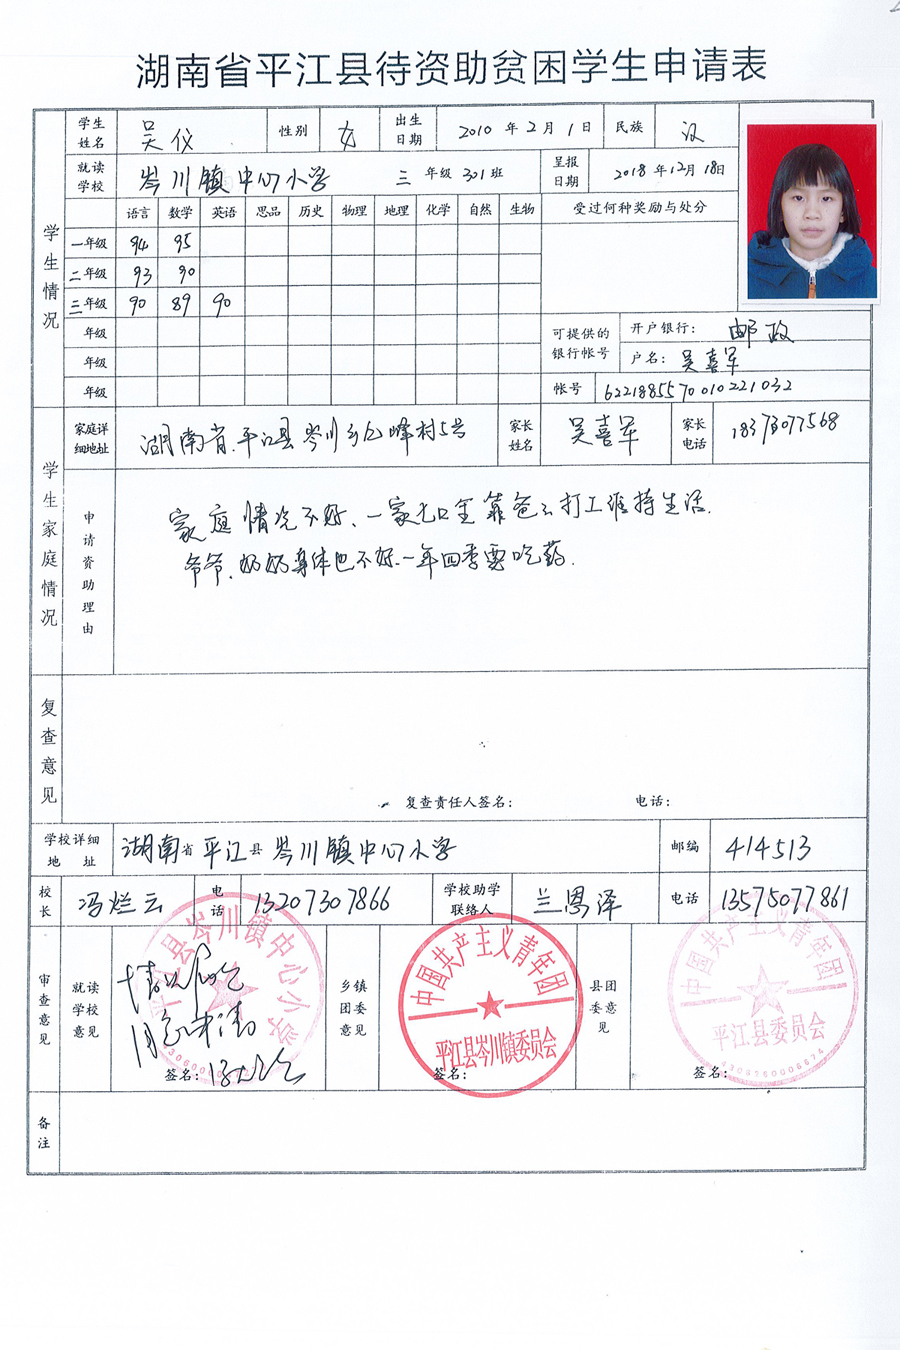 湖南省平江县待资助贫困学生申请表
学生情况
学生姓名 吴仪 性别 女 出生日期 2010年2月1日 民族 汉
就读学校 岑川镇中心小学 三年级301班 呈报日期 2018年12月18日
语言 数学 英语 思品 历史 物理 地理 化学 自然 生物 受过何种奖励与处分
一年级 94 95
二年级 93 90
三年级 90 89 90
年级
年级
年级
可提供的银行帐号 开户银行： 邮政
户名： 吴喜军
帐号 6221885570010221032
学生家庭情况
家庭详细地址 湖南省平江县岑川乡 峰村5号 家长姓名 吴喜军 家长电话 18373077568
申请资助理由
家庭情况不好、一家九口全靠爸爸打工维持生活.
爷爷、奶奶身体也不好.一年四季要吃药.
复查意见
复查责任人签名： 电话：
学校详细地址 湖南省平江县岑川镇中心小学 邮编 414513
校长 冯烂云 电话 13207307866 学校助学联络人 兰恩泽 电话 13575077861
审查意见
就读学校意见 情况属实 签名：
平江县岑川镇中心小学
乡镇团委意见 签名：
中国共产主义青年团
平江县岑川镇委员会
县团委意见 签名：
中国共产主义青年团
平江县委员会
备注